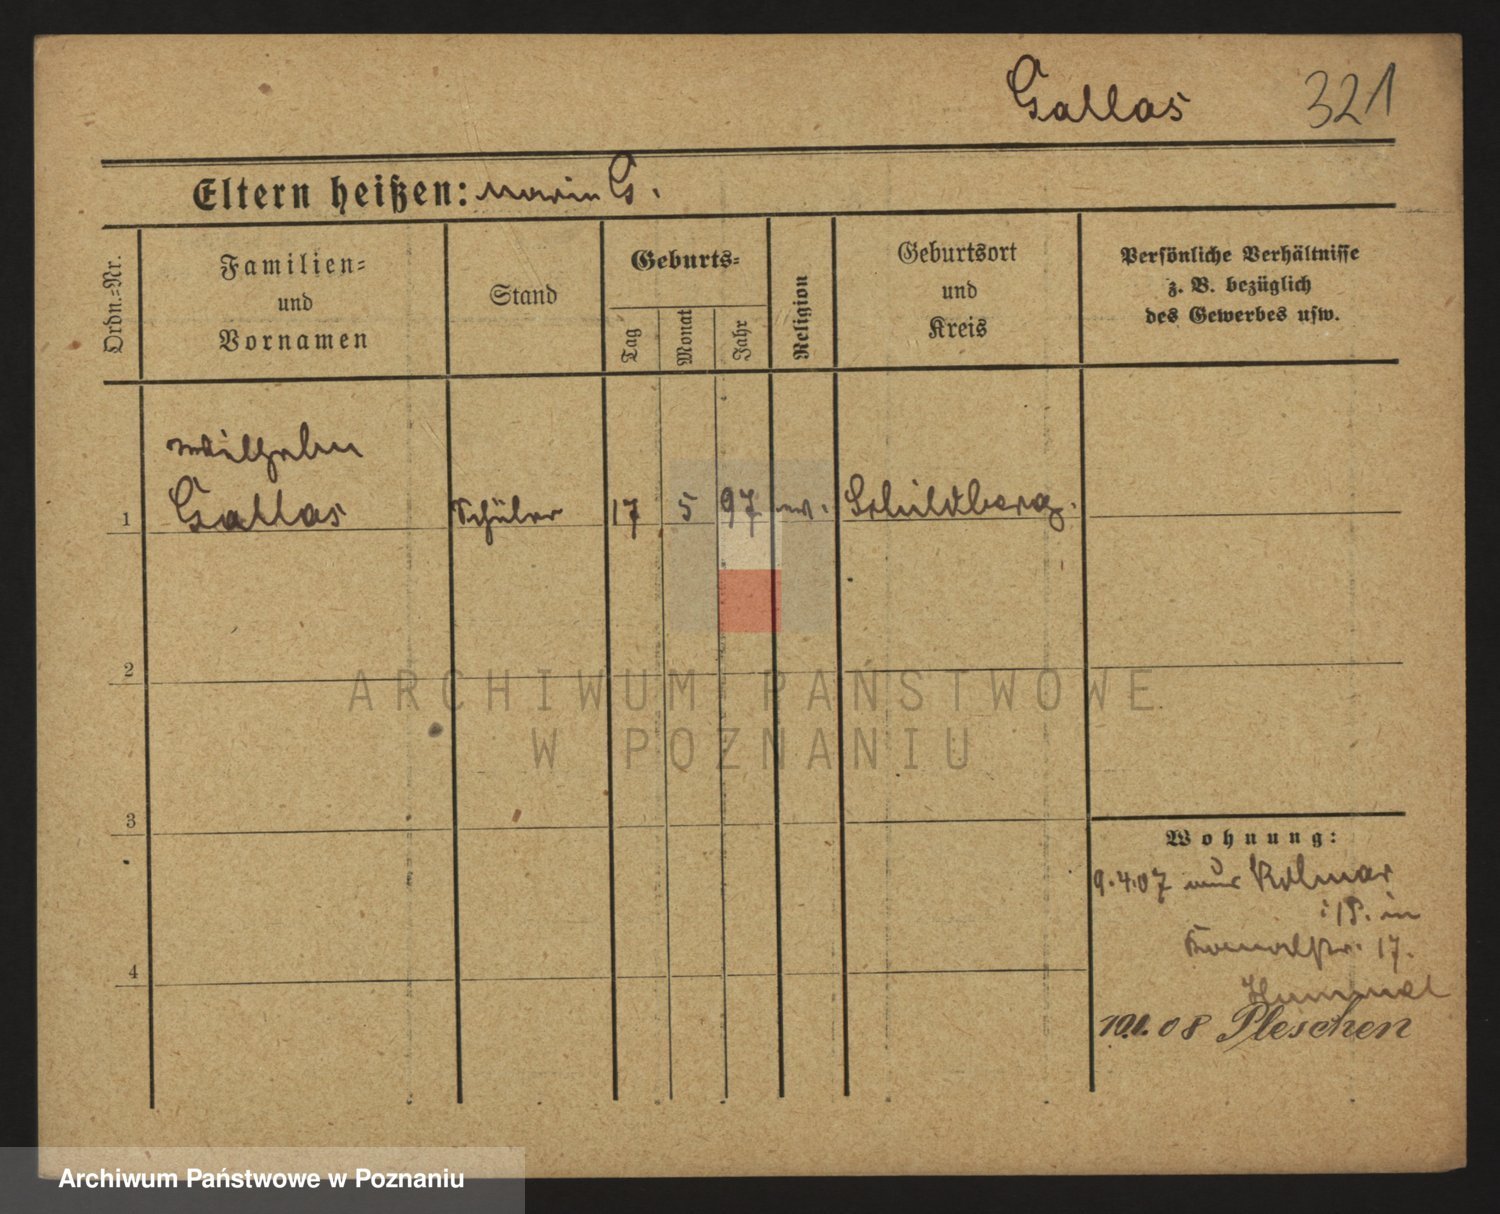 Gallas 321
Eltern heißen: Maria G.
Ordn.=Nr.
Familien=
und
Vornamen
Stand
Geburts=
Tag
Monat
Jahr
Religion
Geburtsort
und
Kreis
Persönliche Verhältnisse
z. B. bezüglich
des Gewerbes usw.
Wilhelm
1 Gallas Schüler 17 5 97 ev. Schildberg.
2
ARCHIWUM PAŃSTWOWE
W POZNANIU
3
Wohnung:
9.4.07 aus Kolmar
i/P. in
17.
4
Hummel
10.1.08 Pleschen
Archiwum Państwowe w Poznaniu